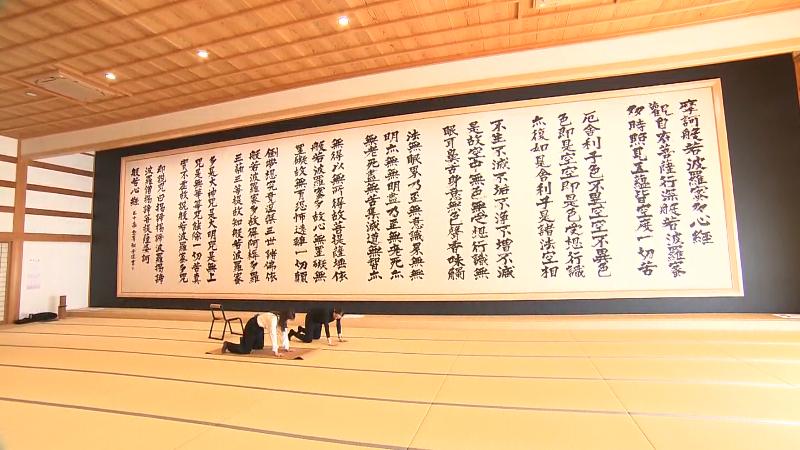 摩訶般若波羅蜜多心経
觀自在菩薩行深般若波羅蜜
多時照見五蘊皆空度一切苦
厄舎利子色不異空空不異色
色即是空空即是色受想行識
亦復如是舎利子是諸法空相
不生不滅不垢不浄不増不減
是故空中無色無受想行識無
眼耳鼻舌身意無色聲香味觸
法無眼界乃至無意識界無無
明亦無無明盡乃至無老死亦
無老死盡無苦集滅道無智亦
無得以無所得故菩提薩埵依
般若波羅蜜多故心無罣礙無
罣礙故無有恐怖遠離一切顛
倒夢想究竟涅槃三世諸佛依
般若波羅蜜多故得阿耨多羅
三藐三菩提故知般若波羅蜜
多是大神咒是大明咒是無上
咒是無等等咒能除一切苦真
實不虚故説般若波羅蜜多咒
即説咒曰羯諦羯諦波羅羯諦
波羅僧羯諦菩提薩婆訶
般若心経